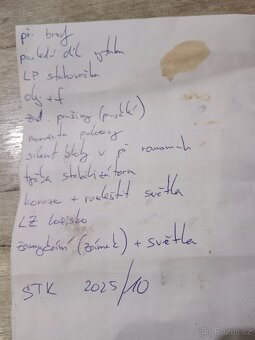 při brzdy
poslední díl výfuku
LP stahovačka
olej + f
zad. pružiny (pružky)
manžeta poloosy
silent bloky v př. ramenech
tyčka stabilizátoru
koroze + rozleštit světla
LZ ložisko
zamykání (zámek) + světla
STK 2025/10